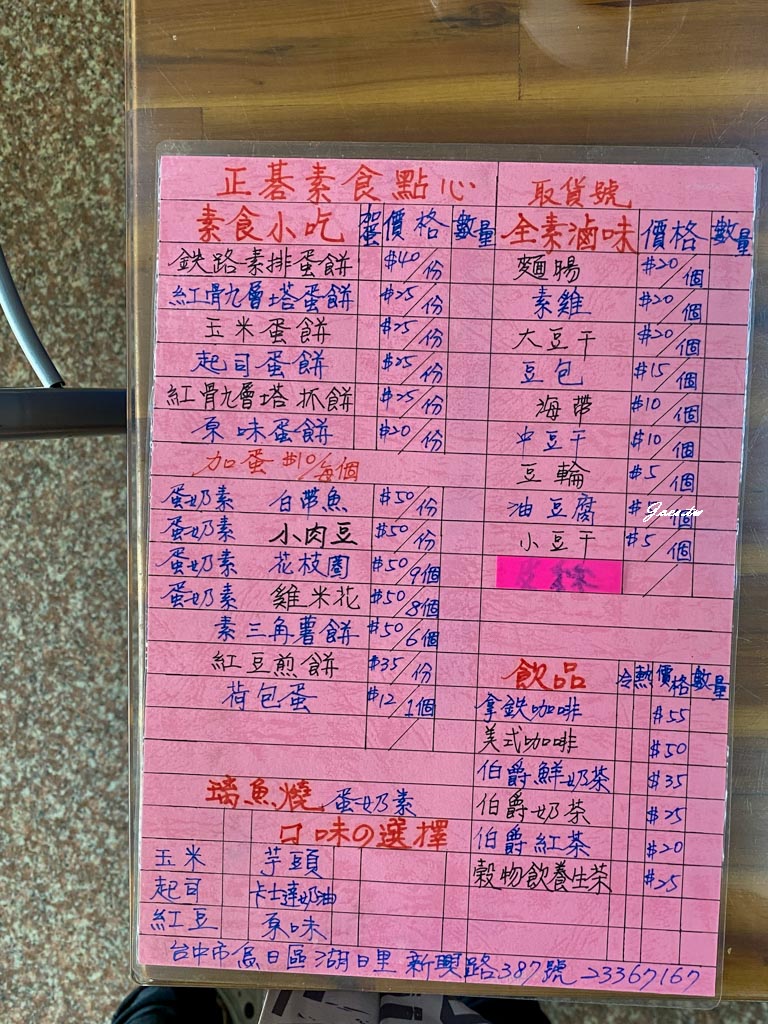 正碁素食點心
取貨號
素食小吃 加蛋 價格 數量
鉄路素排蛋餅 $40/份
紅骨九層塔蛋餅 $25/份
玉米蛋餅 $25/份
起司蛋餅 $25/份
紅骨九層塔抓餅 $25/份
原味蛋餅 $20/份
加蛋 $10/每個
蛋奶素 白帶魚 $50/份
蛋奶素 小肉豆 $50/份
蛋奶素 花枝圈 $50/9個
蛋奶素 雞米花 $50/8個
素三角薯餅 $50/6個
紅豆煎餅 $35/份
荷包蛋 $12/1個
全素滷味 價格 數量
麵腸 $20/個
素雞 $20/個
大豆干 $20/個
豆包 $15/個
海帶 $10/個
中豆干 $10/個
豆輪 $5/個
油豆腐 $ 個
小豆干 $5/個
飲品 冷 熱 價格 數量
拿鉄咖啡 $55
美式咖啡 $50
伯爵鮮奶茶 $35
伯爵奶茶 $25
伯爵紅茶 $20
穀物飲養生茶 $25
璃魚燒 蛋奶素
口味の選擇
玉米 芋頭
起司 卡士達奶油
紅豆 原味
台中市烏日區湖日里新興路387號 23367167